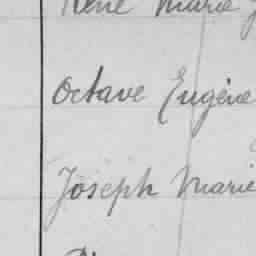 René Marie
Octave Eugène
Joseph Marie